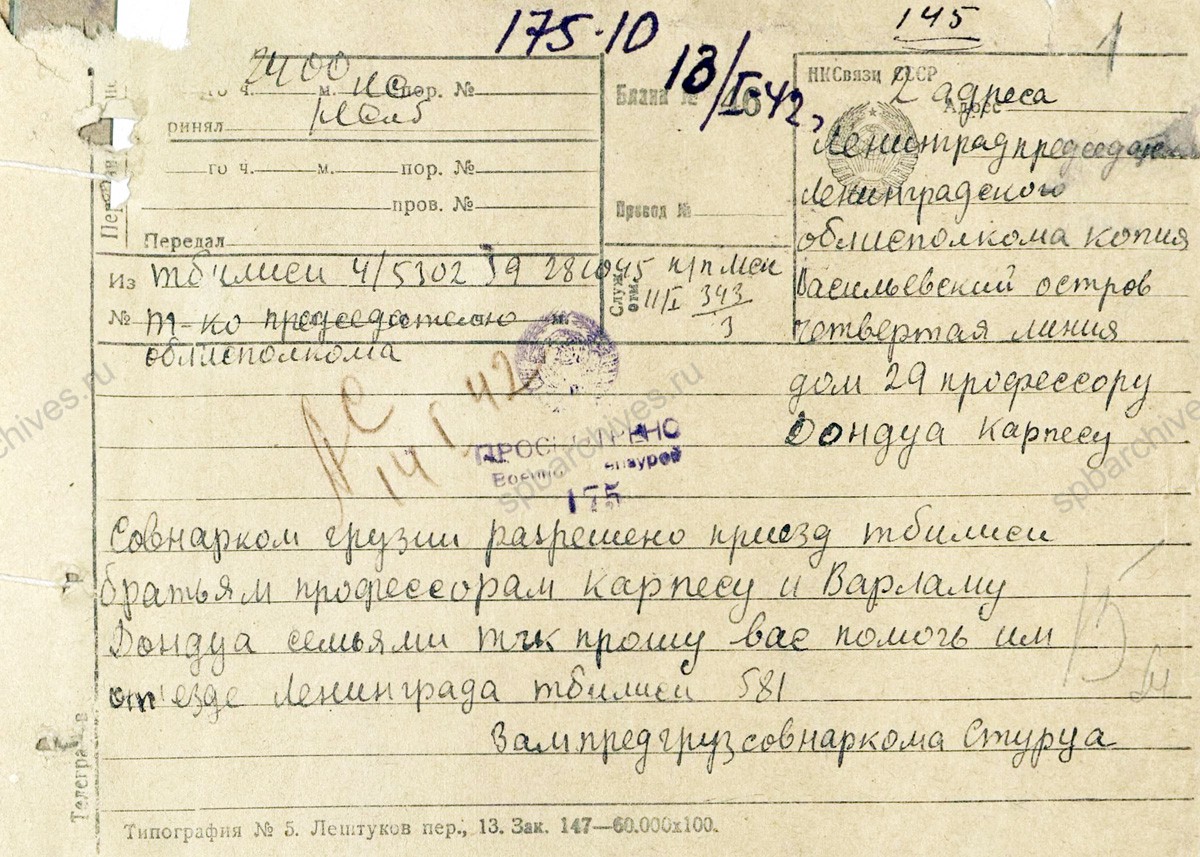 145
175-10
1
13/I-42,
2400
го ч. м. пор. №
ринял
го ч. м. пор. №
пров. №
Передал
Бланк №
Провод №
НКСвязи СССР
Адрес
2 адреса
Ленинград председат
Ленинградского
облисполкома копия
Васильевский остров
четвертая линия
дом 29 профессору
Дондуа Карпесу
Из тбилиси 4/5302 39 28 1045 п/п мск
Служ. отм.
11/I 343
3
№ т-ко председателю
облисполкома
14 I 42
ПРОСМОТРЕНО
Военной Цензурой
175
Совнарком грузии разрешено приезд тбилиси
братьям профессорам Карпесу и Варламу
Дондуа семьями тчк прошу вас помочь им
от'езде Ленинграда тбилиси 581
Зампредгрузсовнаркома Стуруа
15
Типография № 5. Лештуков пер., 13. Зак. 147—60.000х100.
spbarchives.ru